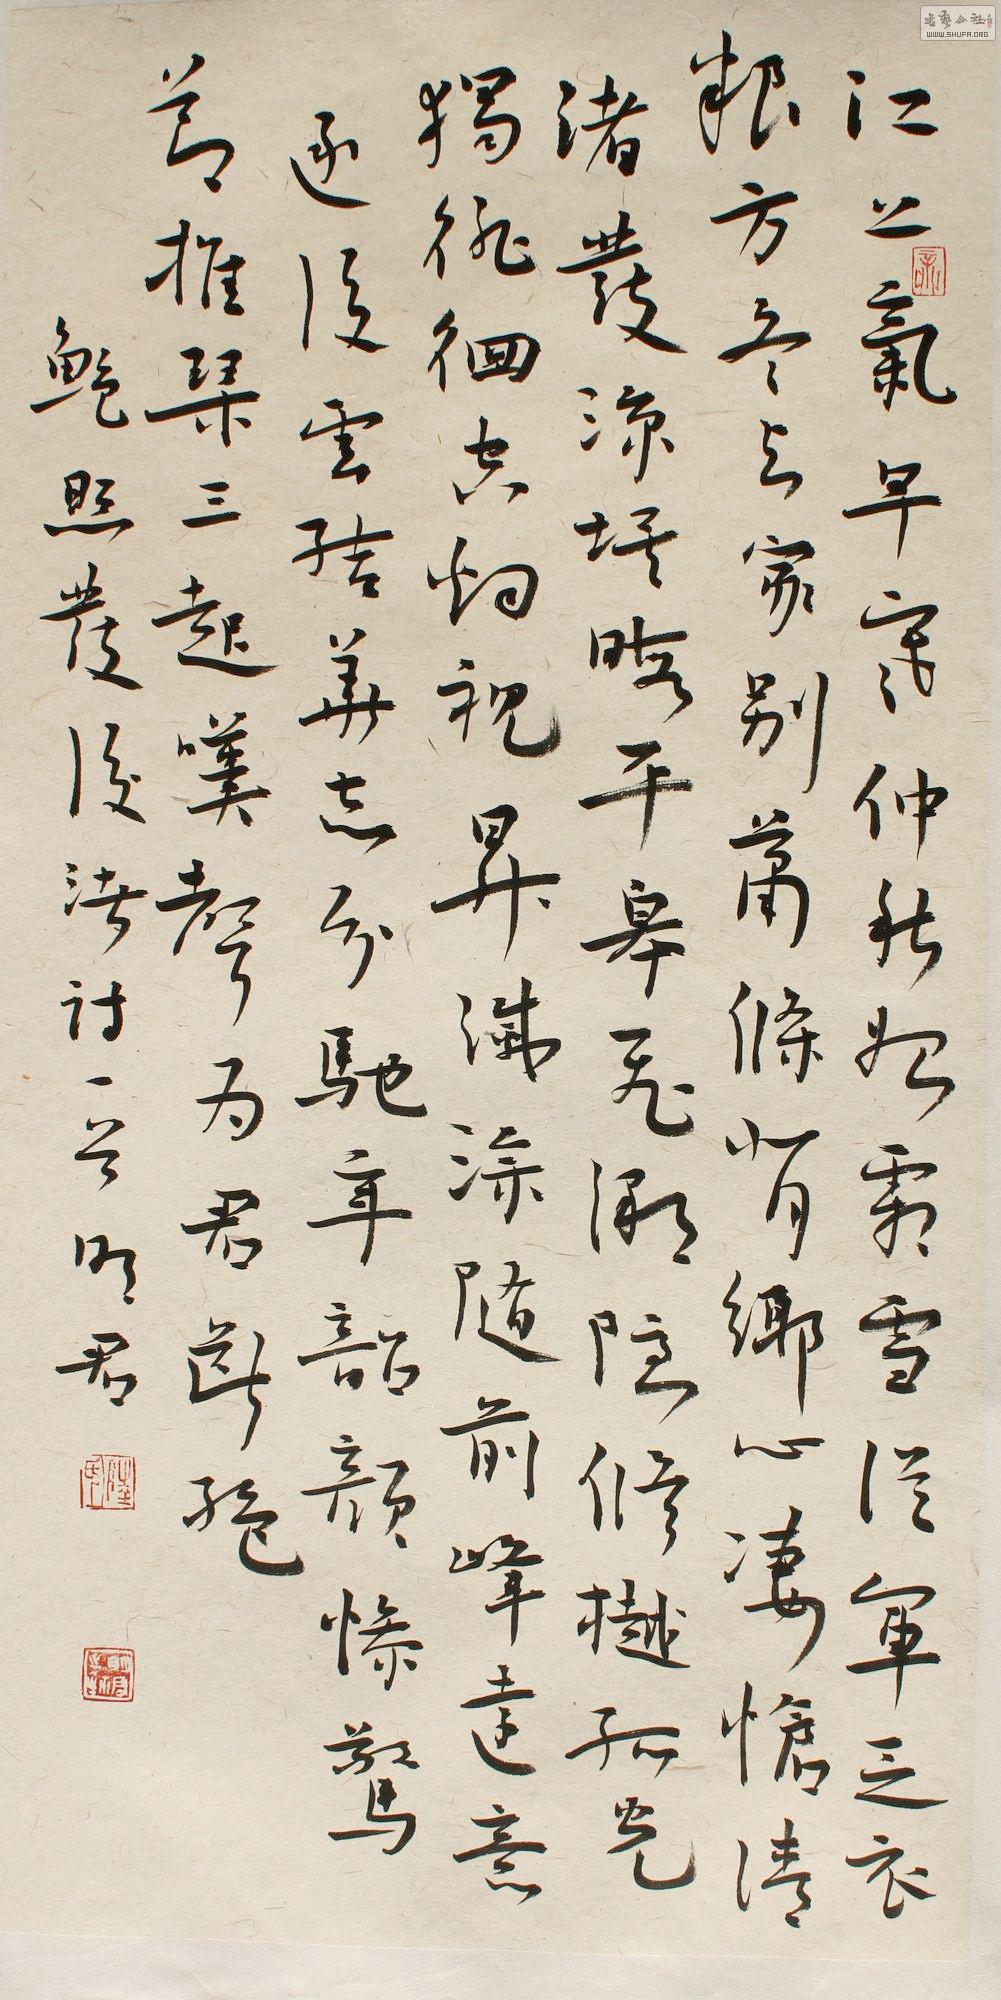 江上氣早寒仲秋始霜雪從軍乏衣
粮方冬與家別蕭條背鄉心淒愴清
渚發涼埃晦平皋飛潮隱修樾孤光
獨徘徊空烟視昇滅塗隨前峰遠意
逐後雲結華志分馳年韶顏慘驚
節推琴三起嘆聲為君斷絕
鮑照發後渚詩一首 明君
WWW.SHUFA.ORG